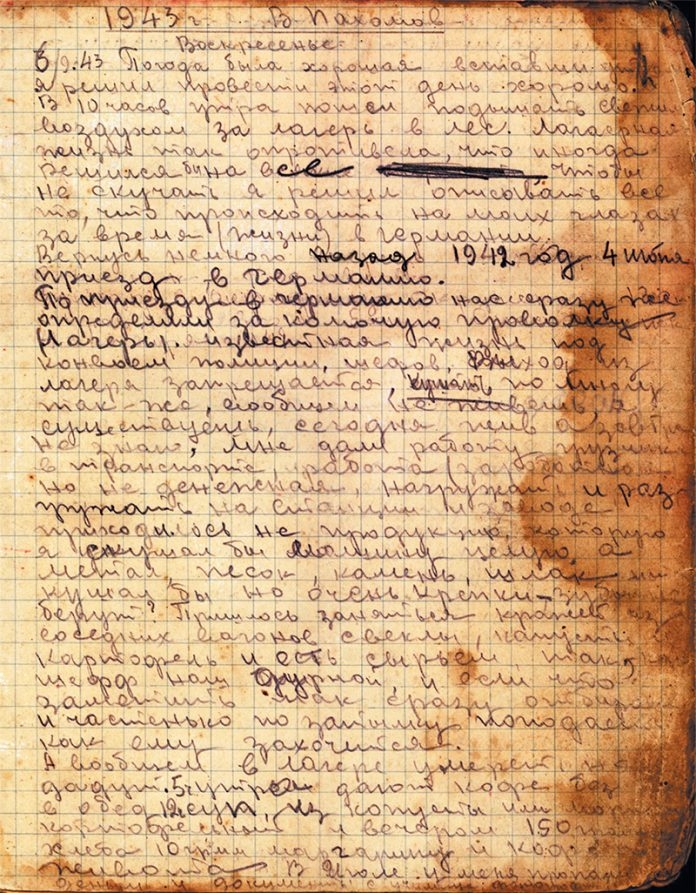 1943 г. В. Пахомов
Воскресенье.
6/9.43 Погода была хорошая вставши утром
я решил провести этот день хорошо.
В 10 часов утра пошел подышать свежим
воздухом за лагерь в лес. Лагерная
жизнь так опротивела, что иногда
бешился бы на все чтобы
не скучать я решил описовать все
то, что происходить на моих глазах
за время (жизни) в Германии.
Вернусь немного назад 1942 год 4 июня
приезд в Германию.
По приезду в Германию нас сразу же
определили за колючую проволку
Лагеры. известная жизнь под
конвоем полиции, шефов, выход из
лагеря запрещается кушать по многу
так-же, вообщем не живешь, а
существуешь, сегодня жив а завтра
не знаю, мне дали работу грузчик
в транспорте, работа
но не денежная, нагружать и раз-
гружать на станции и заводе
приходилось не продукцию, которую
я скушал бы машину целую, а
метал, песок, камень, шлак
кушал бы но очень крепки-зубы не
берут? Пришлось заняться кражей из
соседних вагонов свеклы, капусты
картофель и есть сырьем, так,
шефф наш дурной, и если что
заметить так сразу отбирает
и частенько по затылку попадает
как ему захочится.
А вообщем в лагере умереть не
дадут. 5 ч утра дают кофе без
в обед 12 суп, из копусты или
картофельный и вечером 150 грамм
хлеба 10 грам маргарину и кофе
живота. В Июле у меня пропали
деньги и документы